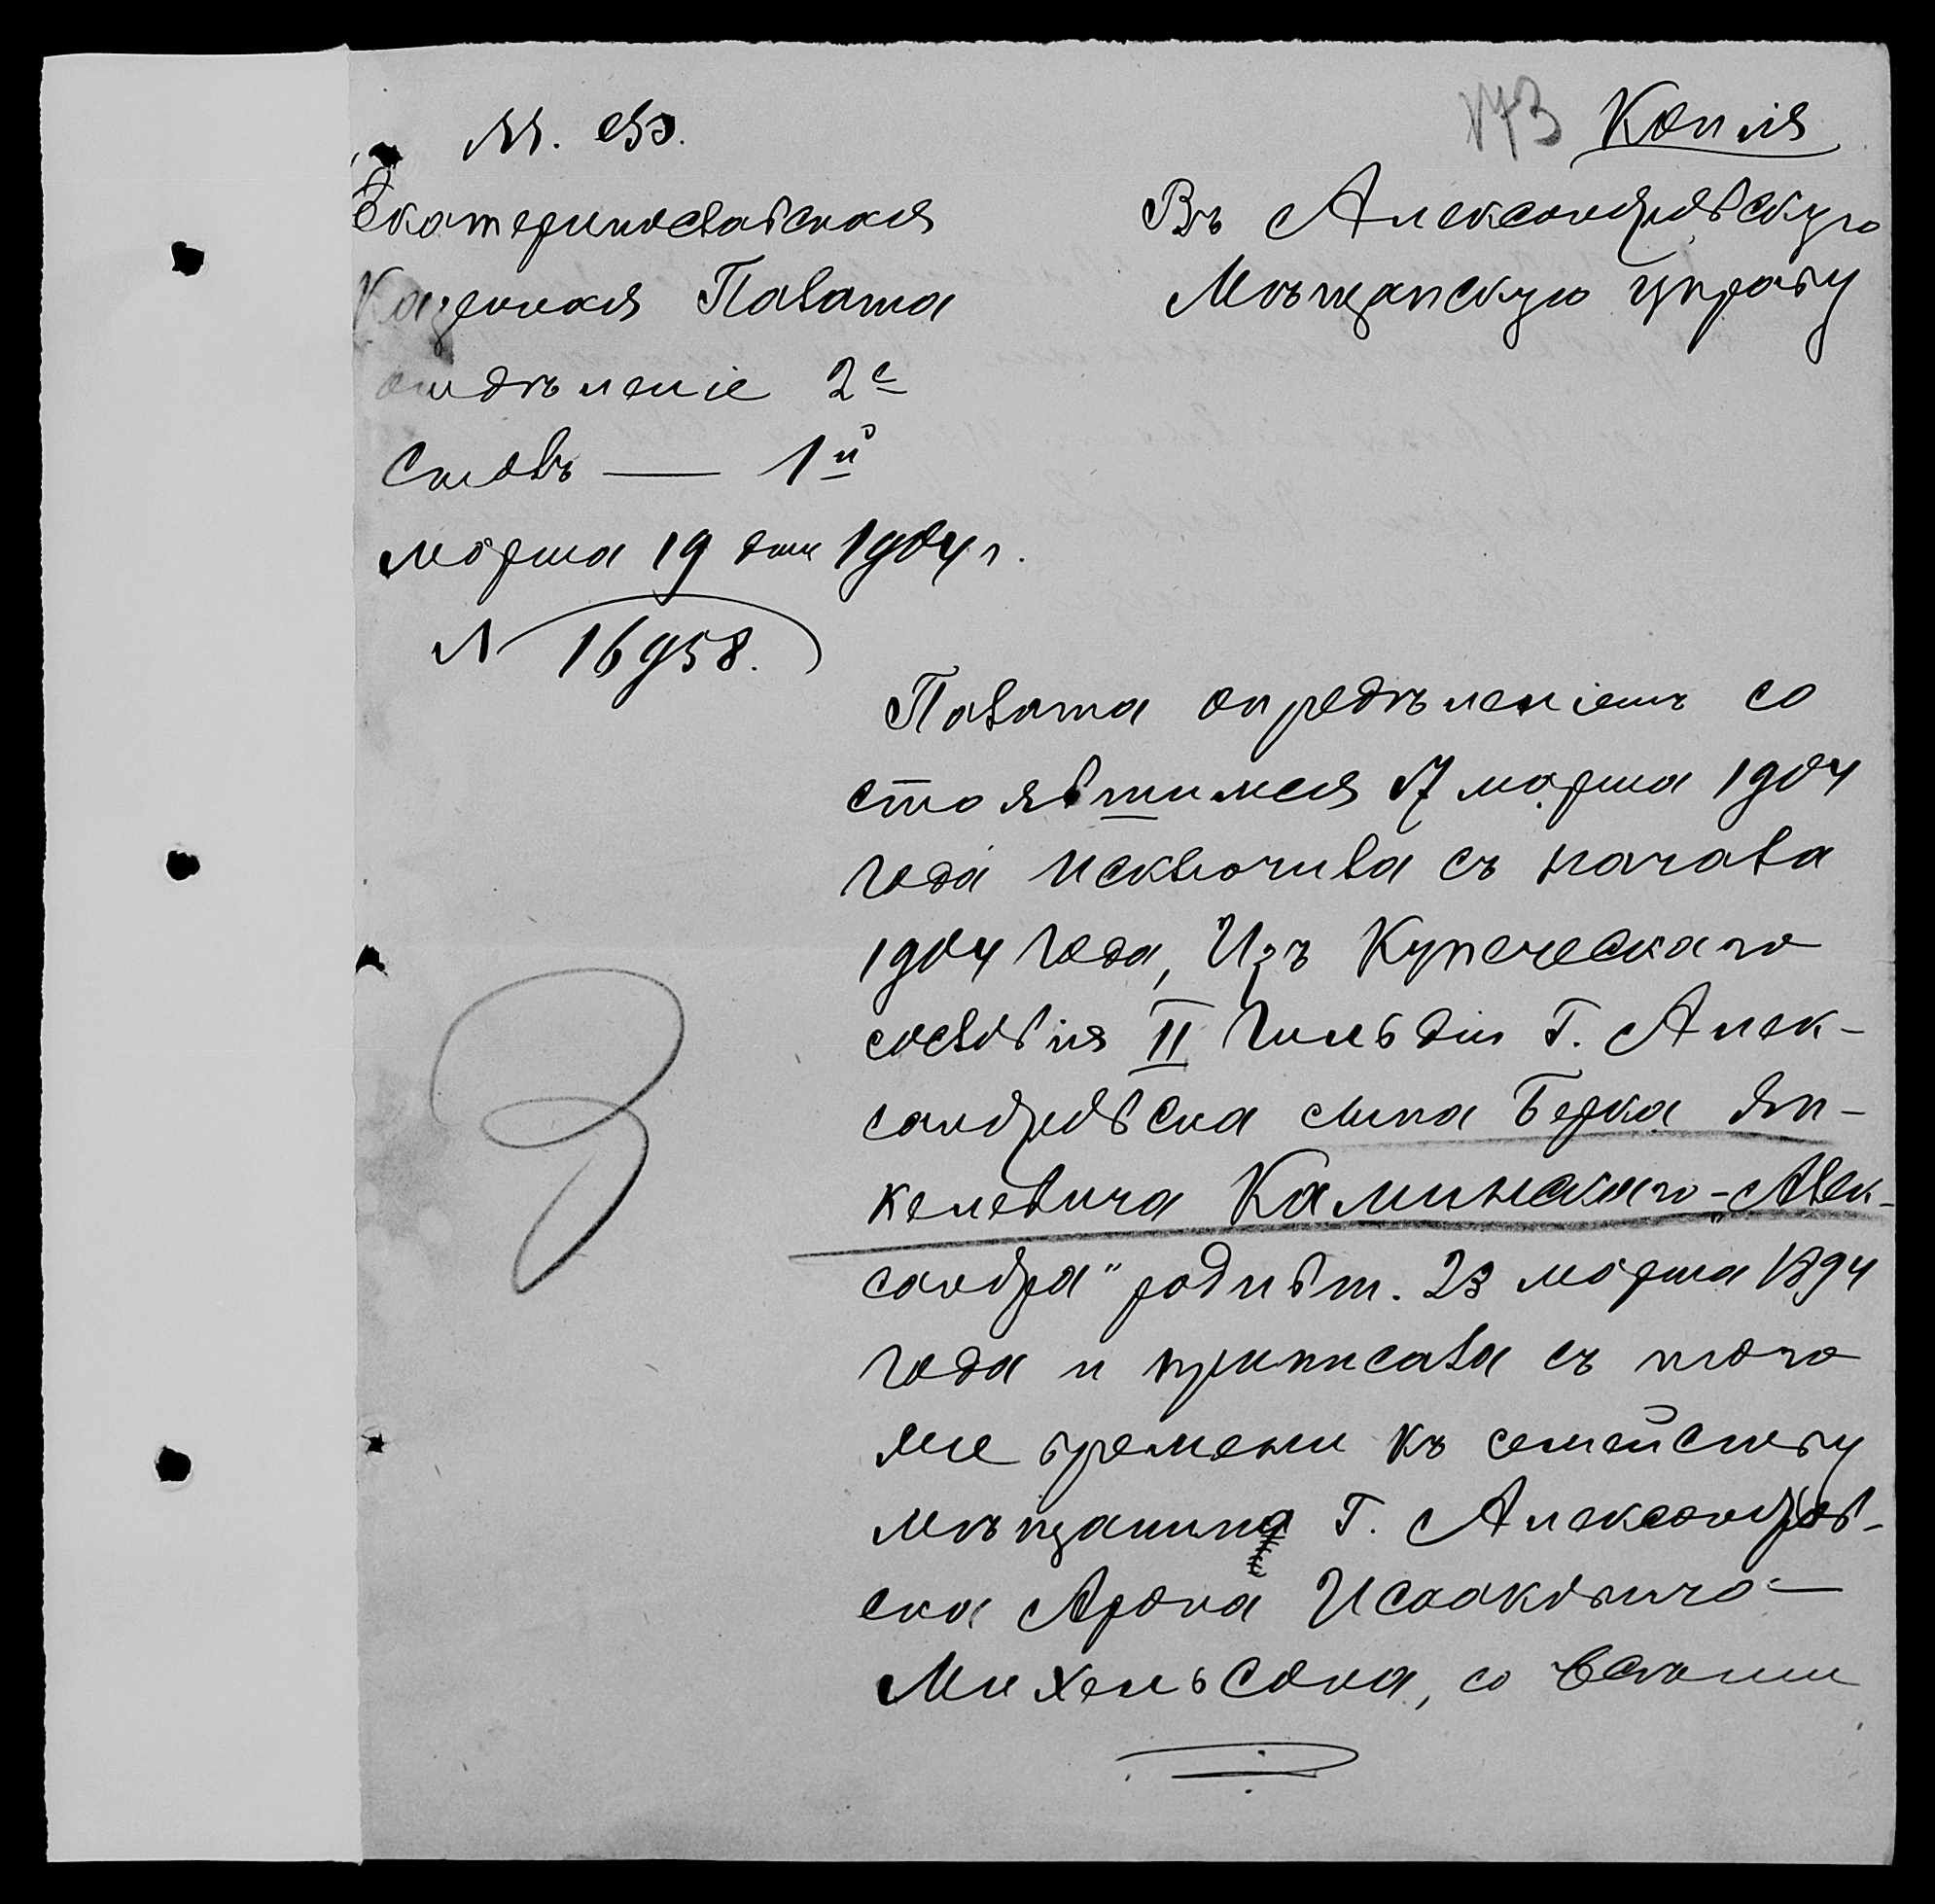 М. Ф.
Екатеринославская
Казенная Палата
отдѣленіе 2е
Столъ — 1й
марта 19 дня 1904 г.
№ 16958.
173 Копія
Въ Александровскую
Мѣщанскую управу
Палата опредѣленіемъ со
стоявшимся 17 марта 1904
года исключила съ начала
1904 года, Изъ Купеческаго
сословія II Гильдіи Г. Алек-
сандровска сына Берка Ян-
келевича Каминскаго-„Алек-
сандра" родивш. 23 марта 1894
года и приписала съ того
же времени къ семейству
мѣщанина Г. Александров-
ска Арона Исааковича
Михельсона, со